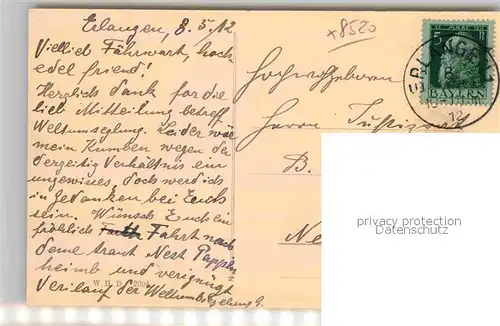 Erlangen, 8.5.12
Viellieb Fährwart, hoch-
edel friend!
Herzlich dank for die
lieb Mitteilung betreff
Weltumseglung. Leider wär
mein Kumben wegen der
derzeitig Verhältnis ein
ungewisses, doch werd ich
in Gedanken bei Euch
sein. Wünsch Euch ein
fröhlich Fahrt nach
deme traut Nest Pappen-
heimb und vergnügt
Verilauf der Weltumbsegelung
W. H. D.
+8520
ERLANGEN
8
12
5
BAYERN
Hochwohlgeboren
Herrn
B.
Ne
privacy protection
watermark